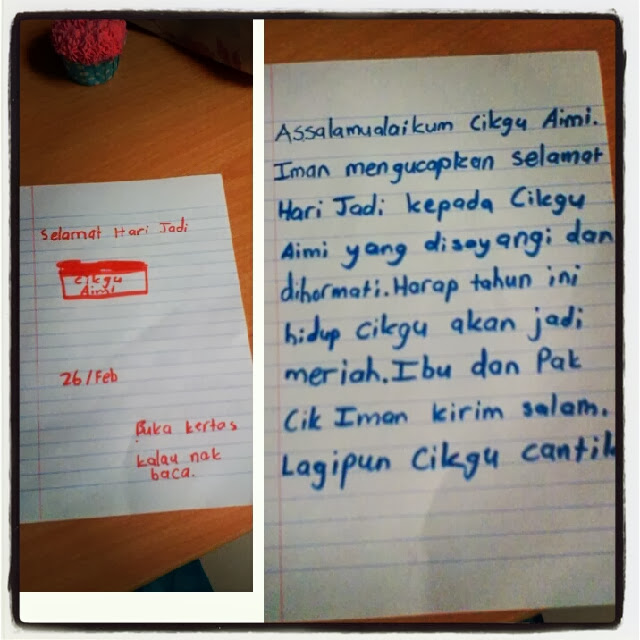 Selamat Hari Jadi
Cikgu
Aimi
26/Feb
Buka kertas
kalau nak
baca.
Assalamualaikum Cikgu Aimi.
Iman mengucapkan selamat
Hari Jadi kepada Cikgu
Aimi yang disayangi dan
dihormati. Harap tahun ini
hidup cikgu akan jadi
meriah. Ibu dan Pak
Cik Iman kirim salam.
Lagipun Cikgu cantik